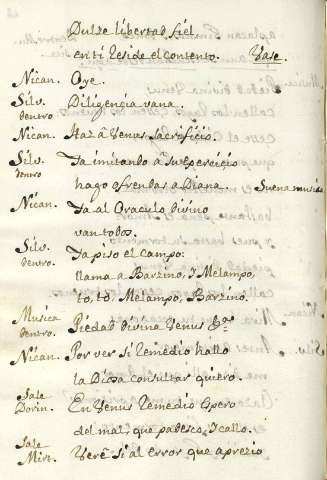 Dulze libertad fiel
en ti Reside el contento. Vase.
Nican. Oye.
Silv. dentro Diligencia vana.
Nican. Haz a Venus sacrificio.
Silv. dentro Ya imitando a su exercicio
hago ofrendas a Diana. Suena musica
Nican. Ya al Oraculo divino
van todos.
Silv. dentro. Ya piso el campo:
llama a Barzino, y Melampo,
to, to, Melampo, Barzino.
Musica dentro. Piedad divina Venus &a.
Nican. Por ver si Remedio hallo
la Diosa consultar quiero.
Sale Dorin. En Venus Remedio espero
del mal, que padesco, y callo.
Sale Mirt. Veré si al error que aprezio